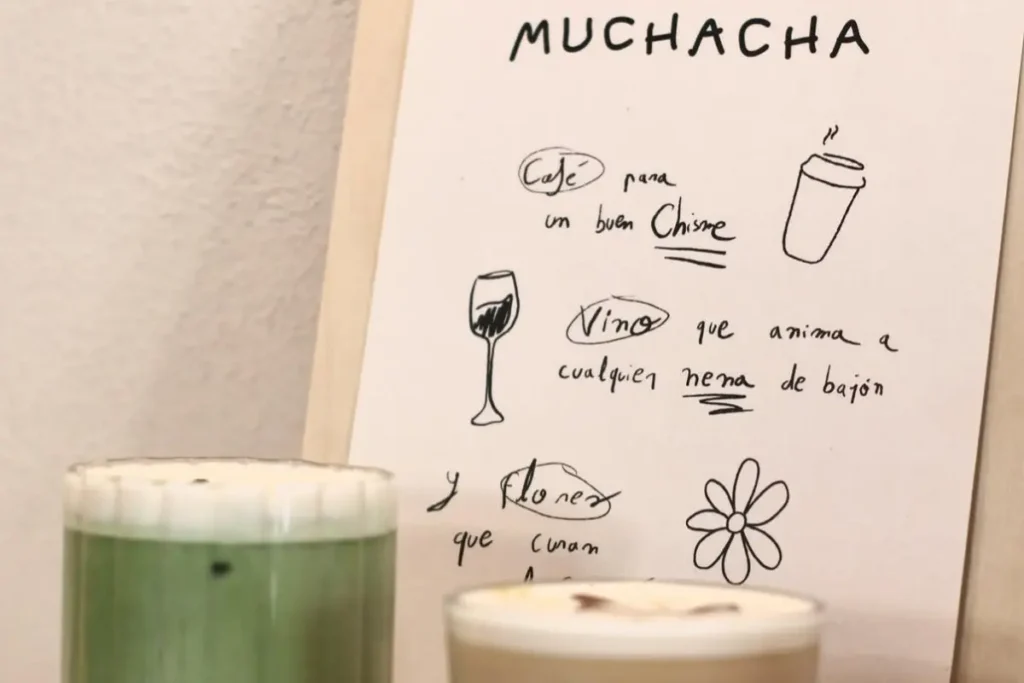 MUCHACHA
Café para
un buen Chisme
Vino que anima a
cualquier nena de bajón
y flores
que curan